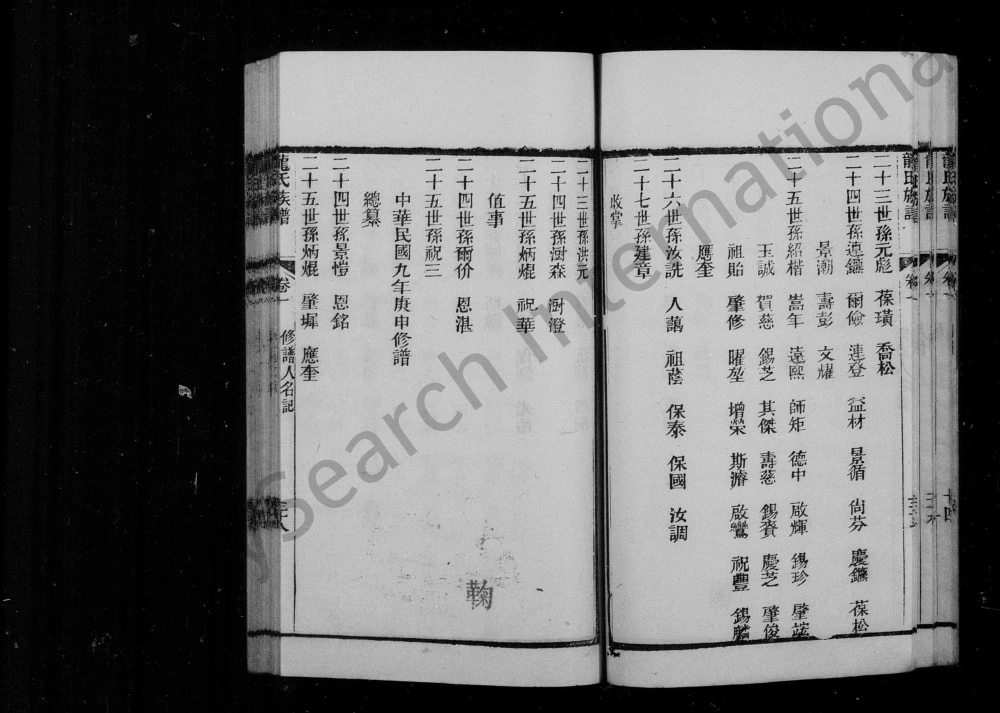 二十三世孫元彪 葆璜 喬松
二十四世孫連鑣 爾儉 連登 益材 景循 尚芬 慶鑣 葆松
景潮 壽彭 文耀
二十五世孫紹楷 嵩年 遠熙 師矩 德中 啟輝 錫珍 肇
玉誠 賀慈 錫芝 其傑 壽慈 錫賚 慶芝 肇俊
祖貽 肇修 曜堃 增榮 斯濟 啟鸞 祝豐 錫麟
應奎
二十六世孫汝詵 人 祖蔭 保泰 保國 汝調
二十七世孫建章
收掌
二十三世孫洪元
二十四世孫澍森 澍澄
二十五世孫炳焜 祝華
值事
二十四世孫爾价 恩湛
二十五世孫祝三
中華民國九年庚申修譜
總纂
二十四世孫景愷 恩銘
二十五世孫炳焜 肇墀 應奎
龍氏族譜 卷一 修譜人名記
鞠
Search International